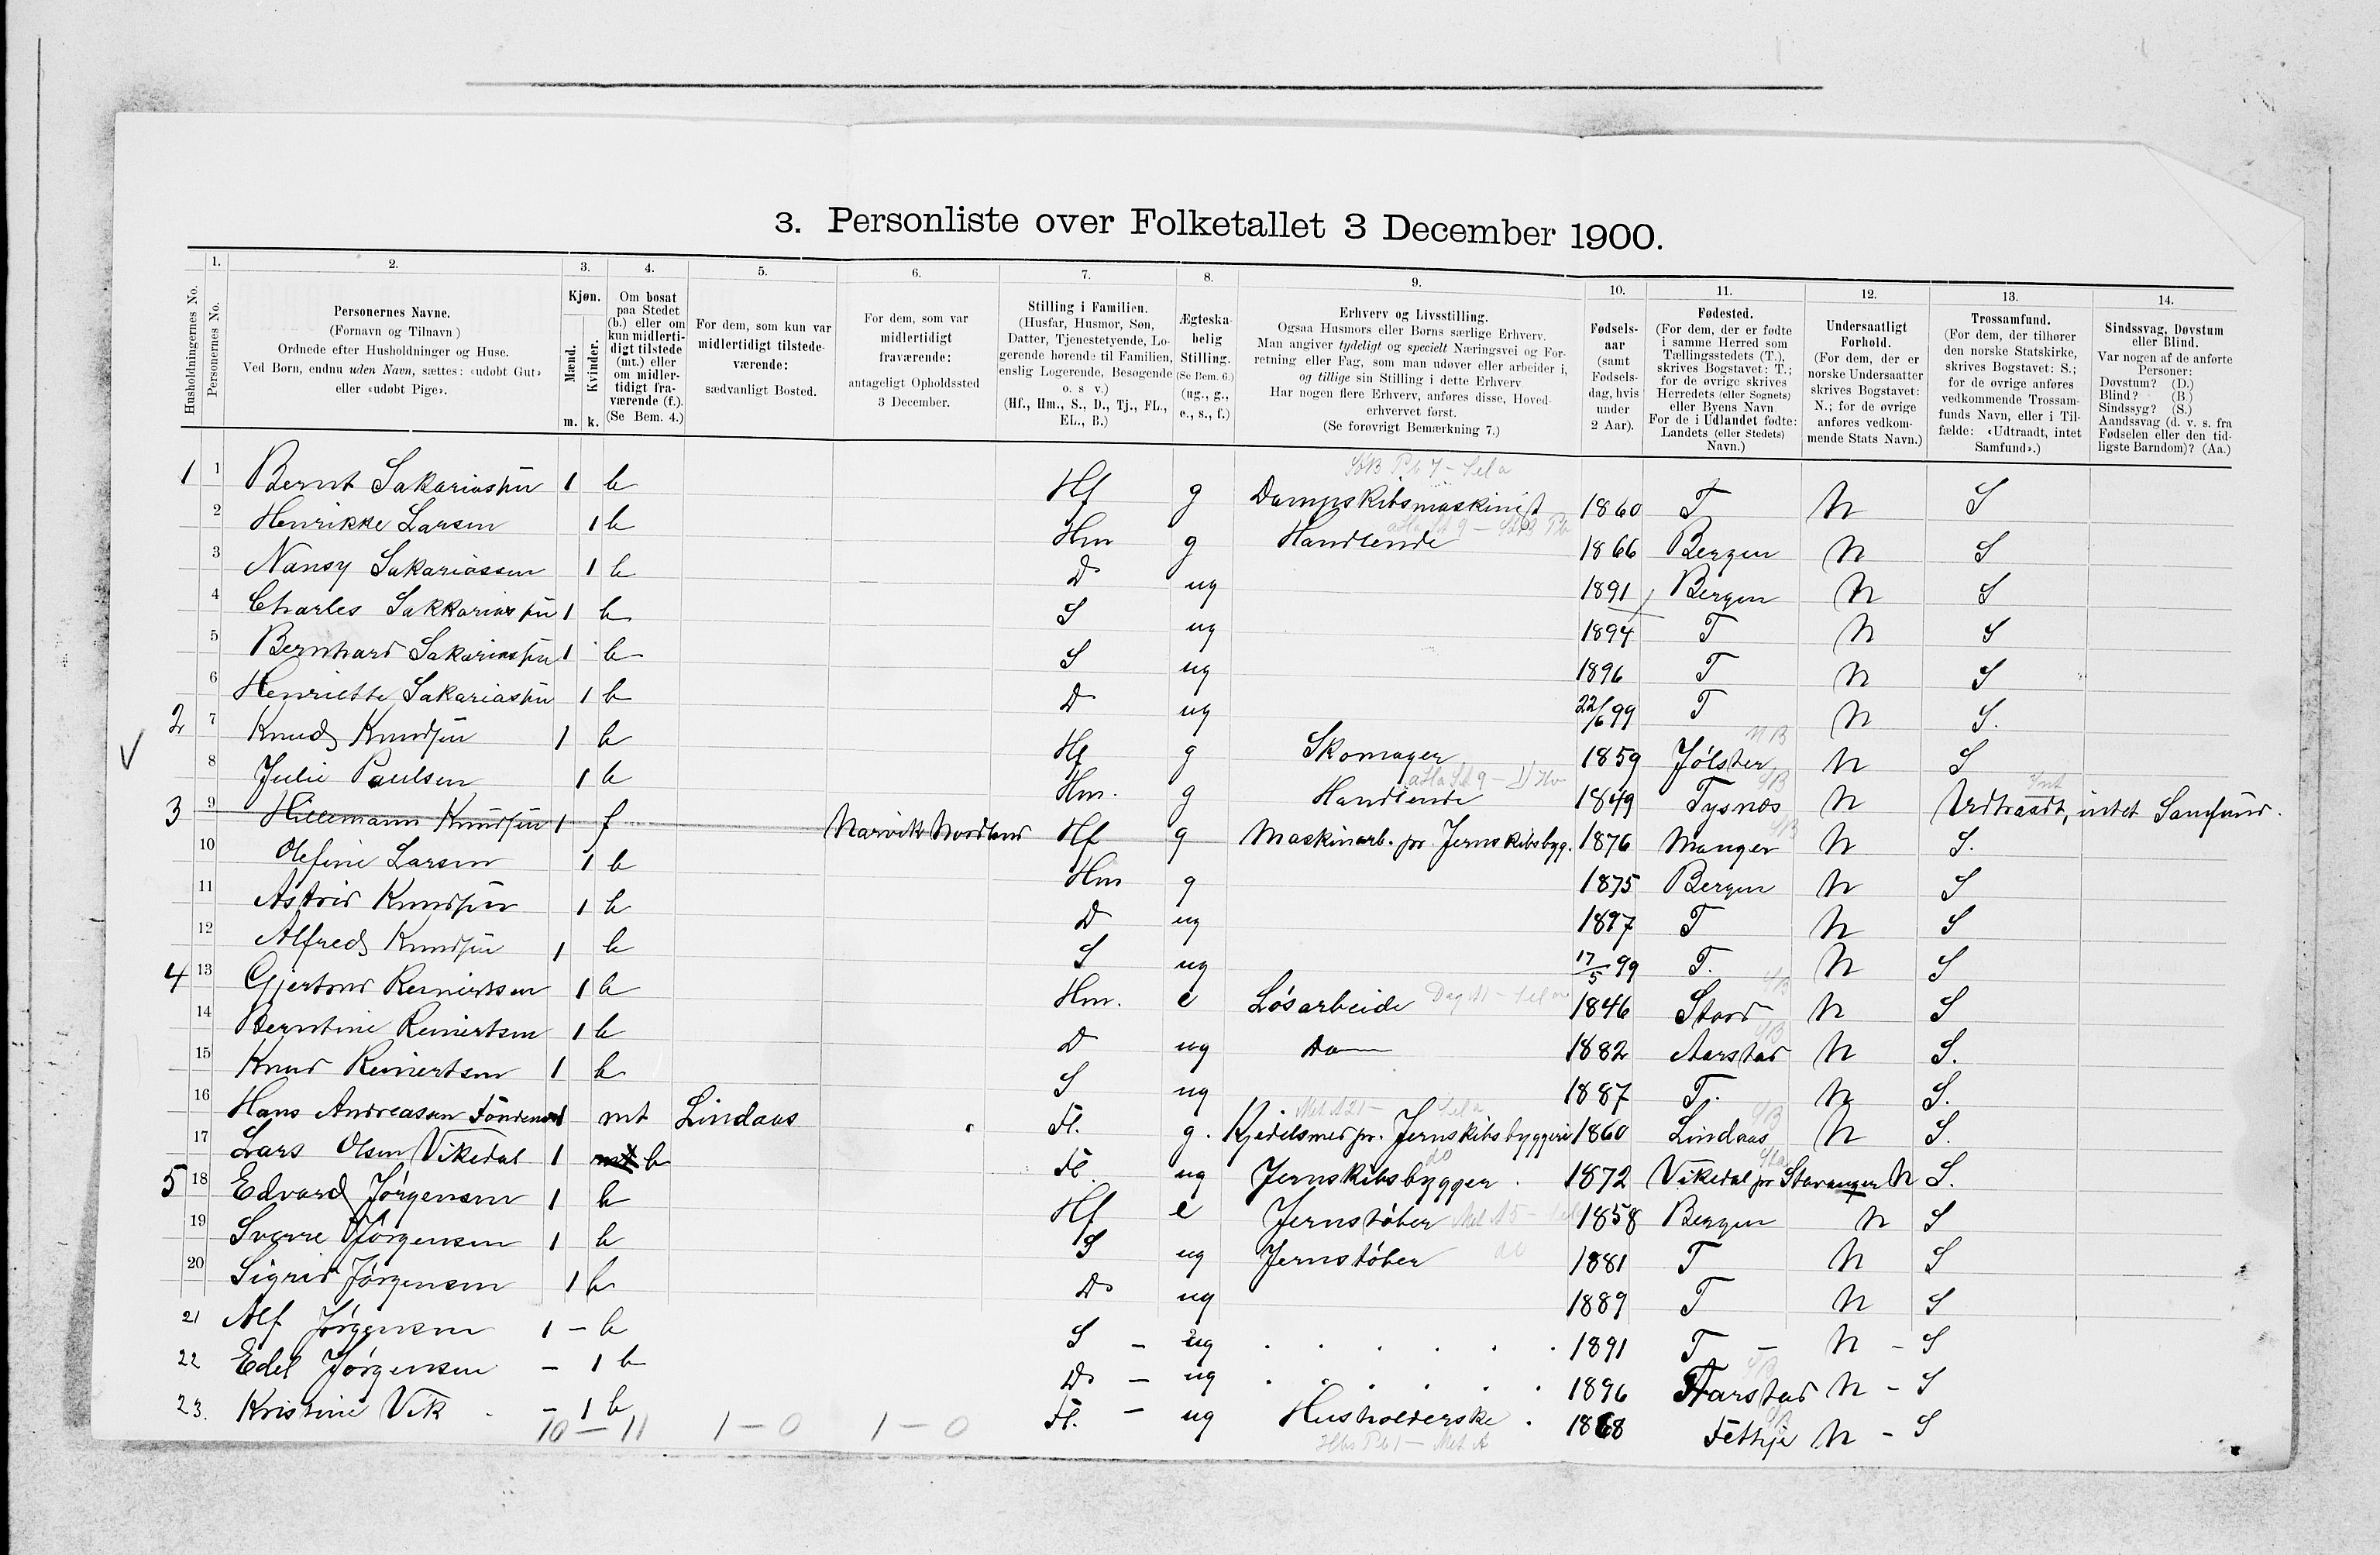 3. Personliste over Folketallet 3 December 1900.
1. 2. 3. 4. 5. 6. 7. 8. 9. 10. 11. 12. 13. 14.
Husholdningernes No.
Personernes No.
Personernes Navne.
(Fornavn og Tilnavn)
Ordnede efter Husholdninger og Huse.
Ved Børn, endnu uden Navn, sættes: «udøbt Gut»
eller «udøbt Pige».
Kjøn.
Mænd.
Kvinder.
m. k.
Om bosat
paa Stedet
(b.) eller om
kun midlerti-
digt tilstede
(mt.) eller
om midler-
tidigt fra-
værende (f.).
(Se Bem. 4.)
For dem, som kun var
midlertidigt tilstede-
værende:
sædvanligt Bosted.
For dem, som var
midlertidigt
fraværende:
antageligt Opholdssted
3 December.
Stilling i Familien.
(Husfar, Husmor, Søn,
Datter, Tjenestetyende, Lo-
gerende hørende til Familien,
enslig Logerende, Besøgende
o. s v.)
(Hf., Hm., S., D., Tj., FL.,
EL., B.)
Ægteska-
belig
Stilling.
(Se Bem. 6.)
(ug., g.,
e., s., f.)
Erhverv og Livsstilling.
Ogsaa Husmors eller Børns særlige Erhverv.
Man angiver tydeligt og specielt Næringsvei og For-
retning eller Fag, som man udøver eller arbeider i,
og tillige sin Stilling i dette Erhverv.
Har nogen flere Erhverv, anføres disse, Hoved-
erhvervet først.
(Se forøvrigt Bemærkning 7.)
Fødsels-
aar
(samt
Fødsels-
dag, hvis
under
2 Aar).
Fødested.
(For dem, der er fødte
i samme Herred som
Tællingsstedets (T.),
skrives Bogstavet: T.;
for de øvrige skrives
Herredets (eller Sognets)
eller Byens Navn.
For de i Udlandet fødte:
Landets (eller Stedets)
Navn.)
Undersaatligt
Forhold.
(For dem, der er
norske Undersaatter
skrives Bogstavet:
N.; for de øvrige
anføres vedkom-
mende Stats Navn.)
Trossamfund.
(For dem, der tilhører
den norske Statskirke,
skrives Bogstavet: S.;
for de øvrige anføres
vedkommende Trossam-
funds Navn, eller i Til-
fælde: «Udtraadt, intet
Samfund».)
Sindssvag, Døvstum
eller Blind.
Var nogen af de anførte
Personer:
Døvstum? (D.)
Blind? (B.)
Sindssyg? (S.)
Aandssvag (d. v. s. fra
Fødselen eller den tid-
ligste Barndom)? (Aa.)
1 1 Bernt Sakariassen 1 b Hf g Dampskibsmaskinist 1860 T N S
2 Henrikke Larsen 1 b Hm g Handlende 1866 Bergen N S
3 Nansy Sakariassen 1 b D ug 1891 Bergen N S
4 Charles Sakkariassen 1 b S ug 1894 T N S
5 Bernhard Sakariassen 1 b S ug 1896 T N S
6 Henriette Sakariassen 1 b D ug 22/6 99 T N S.
2 7 Knud Knudsen 1 b Hf g Skomager 1859 Jølster N S
8 Julie Paulsen 1 b Hm. g Handlende 1849 Tysnæs N Udtraadt, intet Samfund.
3 9 Hillemann Knudsen 1 f Narvik Nordland Hf g Maskinarb. pr. Jernskibsbyg. 1876 Manger N S.
10 Olefine Larsen 1 b Hm g 1875 Bergen N S
11 Astrid Knudsen 1 b D ug 1897 T N S
12 Alfred Knudsen 1 b S ug 17/5 99 T. N S
4 13 Gjertrud Reinertsen 1 b Hm. e Løsarbeide 1846 Stord N S
14 Berntine Reinertsen 1 b D ug Do 1882 Aarstad N S.
15 Knud Reinertsen 1 b S ug 1887 T. N S.
16 Hans Andreassen 1 mt Lindaas Fl. g. Kjedelsmed pr. Jernskibsbyggeri 1860 Lindaas N S.
17 Lars Olsen Vikedal 1 b Fl. ug Jernskibsbygger. 1872 Vikedal pr Stavanger N S.
5 18 Edvard Jørgensen 1 b Hf e Jernstøber 1858 Bergen N S
19 Sverre Jørgensen 1 b S ug Jernstøber do 1881 T N S
20 Sigrid Jørgensen 1 b D ug 1889 T N S
21 Alf Jørgensen 1 - b S - ug 1891 T - N - S
22 Edel Jørgensen - 1 b D - ug 1896 Aarstad N - S
23. Kristine Vik - 1 b Fl. - ug Husholderske. 1868 Fethje N - S
10 - 11 1 - 0 1 - 0